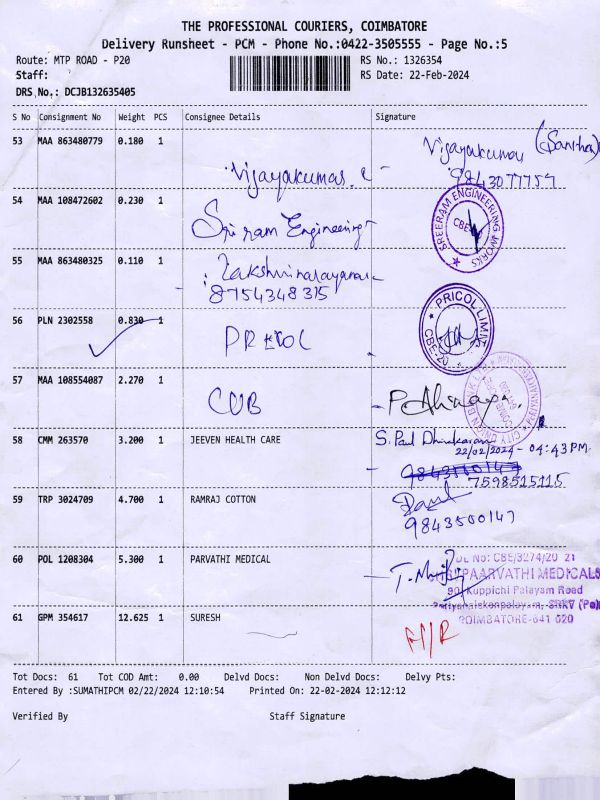 THE PROFESSIONAL COURIERS, COIMBATORE
Delivery Runsheet - PCM - Phone No.:0422-3505555 - Page No.:5
Route: MTP ROAD - P20 RS No.: 1326354
Staff: RS Date: 22-Feb-2024
DRS No.: DCJB132635405
S No Consignment No Weight PCS Consignee Details Signature
53 MAA 863480779 0.180 1 Vijayakumar Vijayakumar
9843077757
54 MAA 108472602 0.230 1 Sriram Engineering SREERAM ENGINEERING WORKS
55 MAA 863480325 0.110 1 Lakshminarayanan
8754348315
56 PLN 2302558 0.830 1 PRICOL PRICOL LIMITED CBE-20
57 MAA 108554087 2.270 1 CUB
CITY UNION BANK
58 CMM 263570 3.200 1 JEEVEN HEALTH CARE S. Paul Dhinakaran
22/02/2024 - 04:43 PM
9843500147
7598515115
59 TRP 3024709 4.700 1 RAMRAJ COTTON Paul
9843500147
60 POL 1208304 5.300 1 PARVATHI MEDICAL
DL No: CBE/3274/20 21
PAARVATHI MEDICALS
90, Kuppichi Palayam Road
COIMBATORE-641 020
61 GPM 354617 12.625 1 SURESH
Tot Docs: 61 Tot COD Amt: 0.00 Delvd Docs: Non Delvd Docs: Delvy Pts:
Entered By :SUMATHIPCM 02/22/2024 12:10:54 Printed On: 22-02-2024 12:12:12
Verified By Staff Signature